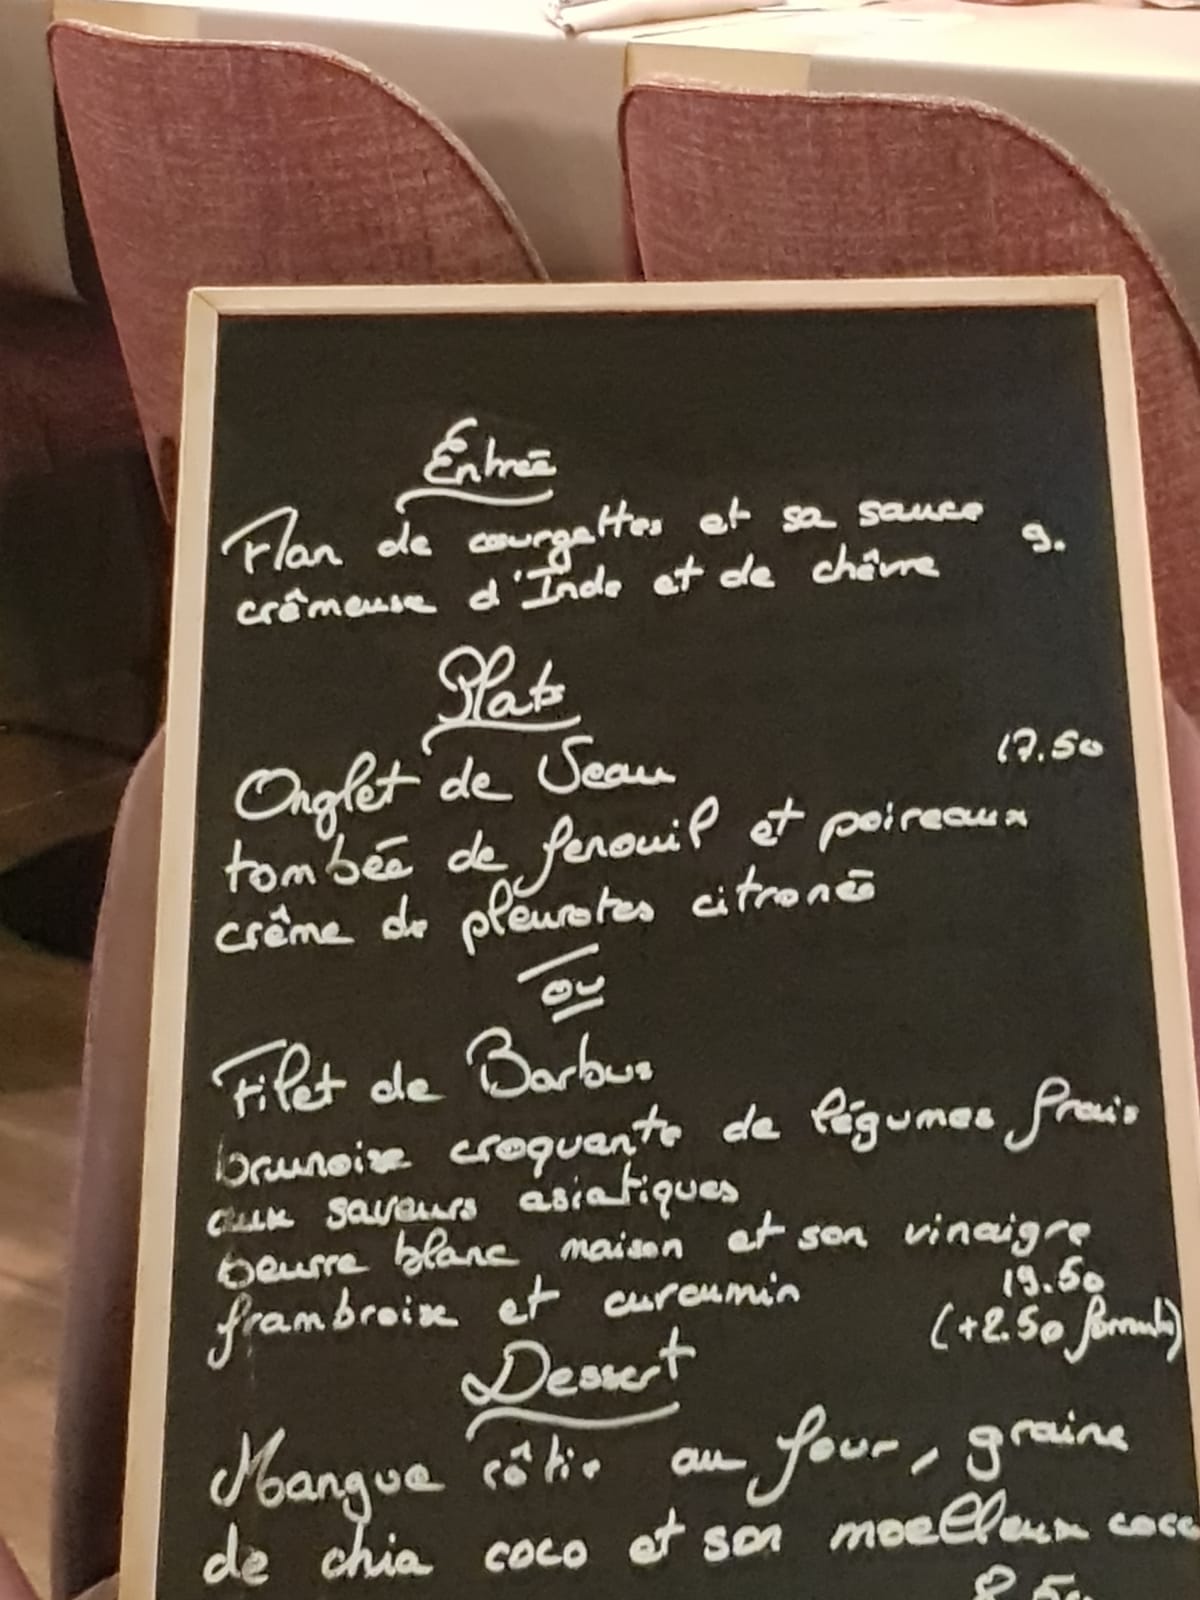 Entrée
Flan de courgettes et sa sauce
9.
crêmeuse d'Inde et de chêvre
Plats
Onglet de Veau
17.50
tombée de fenouil et poireaux
crême de pleurotes citronée
ou
Filet de Barbue
brunoise croquante de légumes frais
aux saveurs asiatiques
beurre blanc maison et son vinaigre
framboise et curcumin
19.50
(+2.50 formule)
Dessert
Mangue rôtie au four, graine
de chia coco et son moelleux coco
8.50